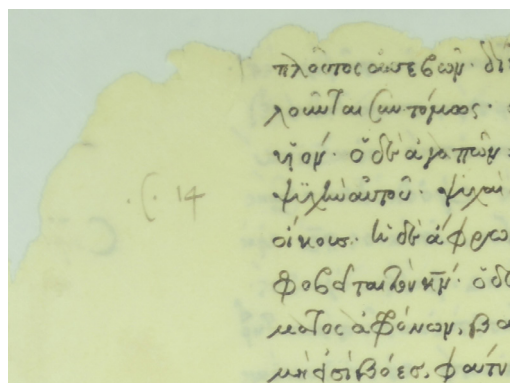 πλοῦτος ἀσεβῶν· δί
λοῦνται συντόμως·
υἱόν· ὁ δὲ ἀγαπῶν
ψυχὴν αὐτοῦ· ψυχαὶ
οἴκους· ἡ δὲ ἄφρω
· C · 14
φοβεῖται τὸν κ̄ν̄· ὁ δὲ
ματος ἀφρόνων, βα
μή εἰσι βόες, φάτν